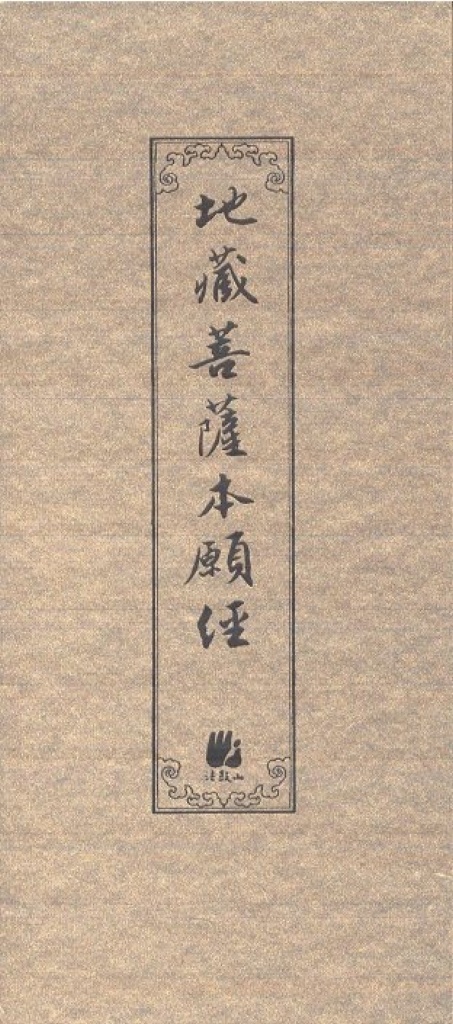 地藏菩薩本願經
法鼓山